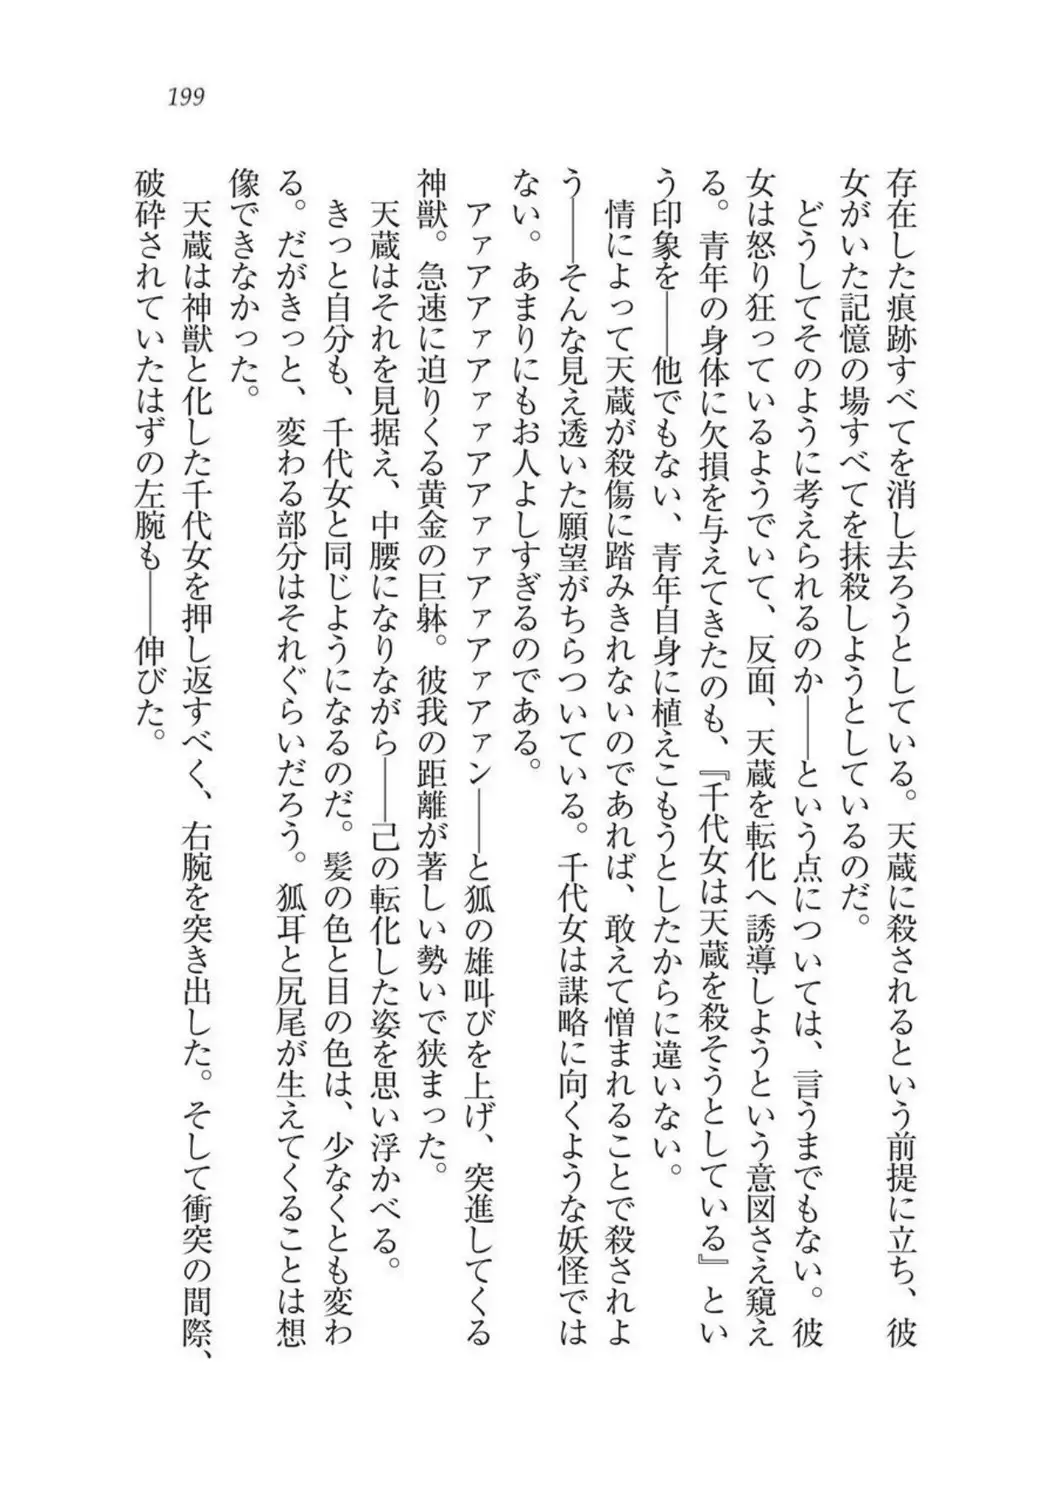 199
存在した痕跡すべてを消し去ろうとしている。天蔵に殺されるという前提に立ち、彼
女がいた記憶の場すべてを抹殺しようとしているのだ。
どうしてそのように考えられるのか――という点については、言うまでもない。彼
女は怒り狂っているようでいて、反面、天蔵を転化へ誘導しようという意図さえ窺え
る。青年の身体に欠損を与えてきたのも、『千代女は天蔵を殺そうとしている』とい
う印象を――他でもない、青年自身に植えこもうとしたからに違いない。
情によって天蔵が殺傷に踏みきれないのであれば、敢えて憎まれることで殺されよ
う――そんな見え透いた願望がちらついている。千代女は謀略に向くような妖怪では
ない。あまりにもお人よしすぎるのである。
アァアアァアァァアアァァアァアァアァン――と狐の雄叫びを上げ、突進してくる
神獣。急速に迫りくる黄金の巨躰。彼我の距離が著しい勢いで狭まった。
天蔵はそれを見据え、中腰になりながら――己の転化した姿を思い浮かべる。
きっと自分も、千代女と同じようになるのだ。髪の色と目の色は、少なくとも変わ
る。だがきっと、変わる部分はそれぐらいだろう。狐耳と尻尾が生えてくることは想
像できなかった。
天蔵は神獣と化した千代女を押し返すべく、右腕を突き出した。そして衝突の間際、
破砕されていたはずの左腕も――伸びた。